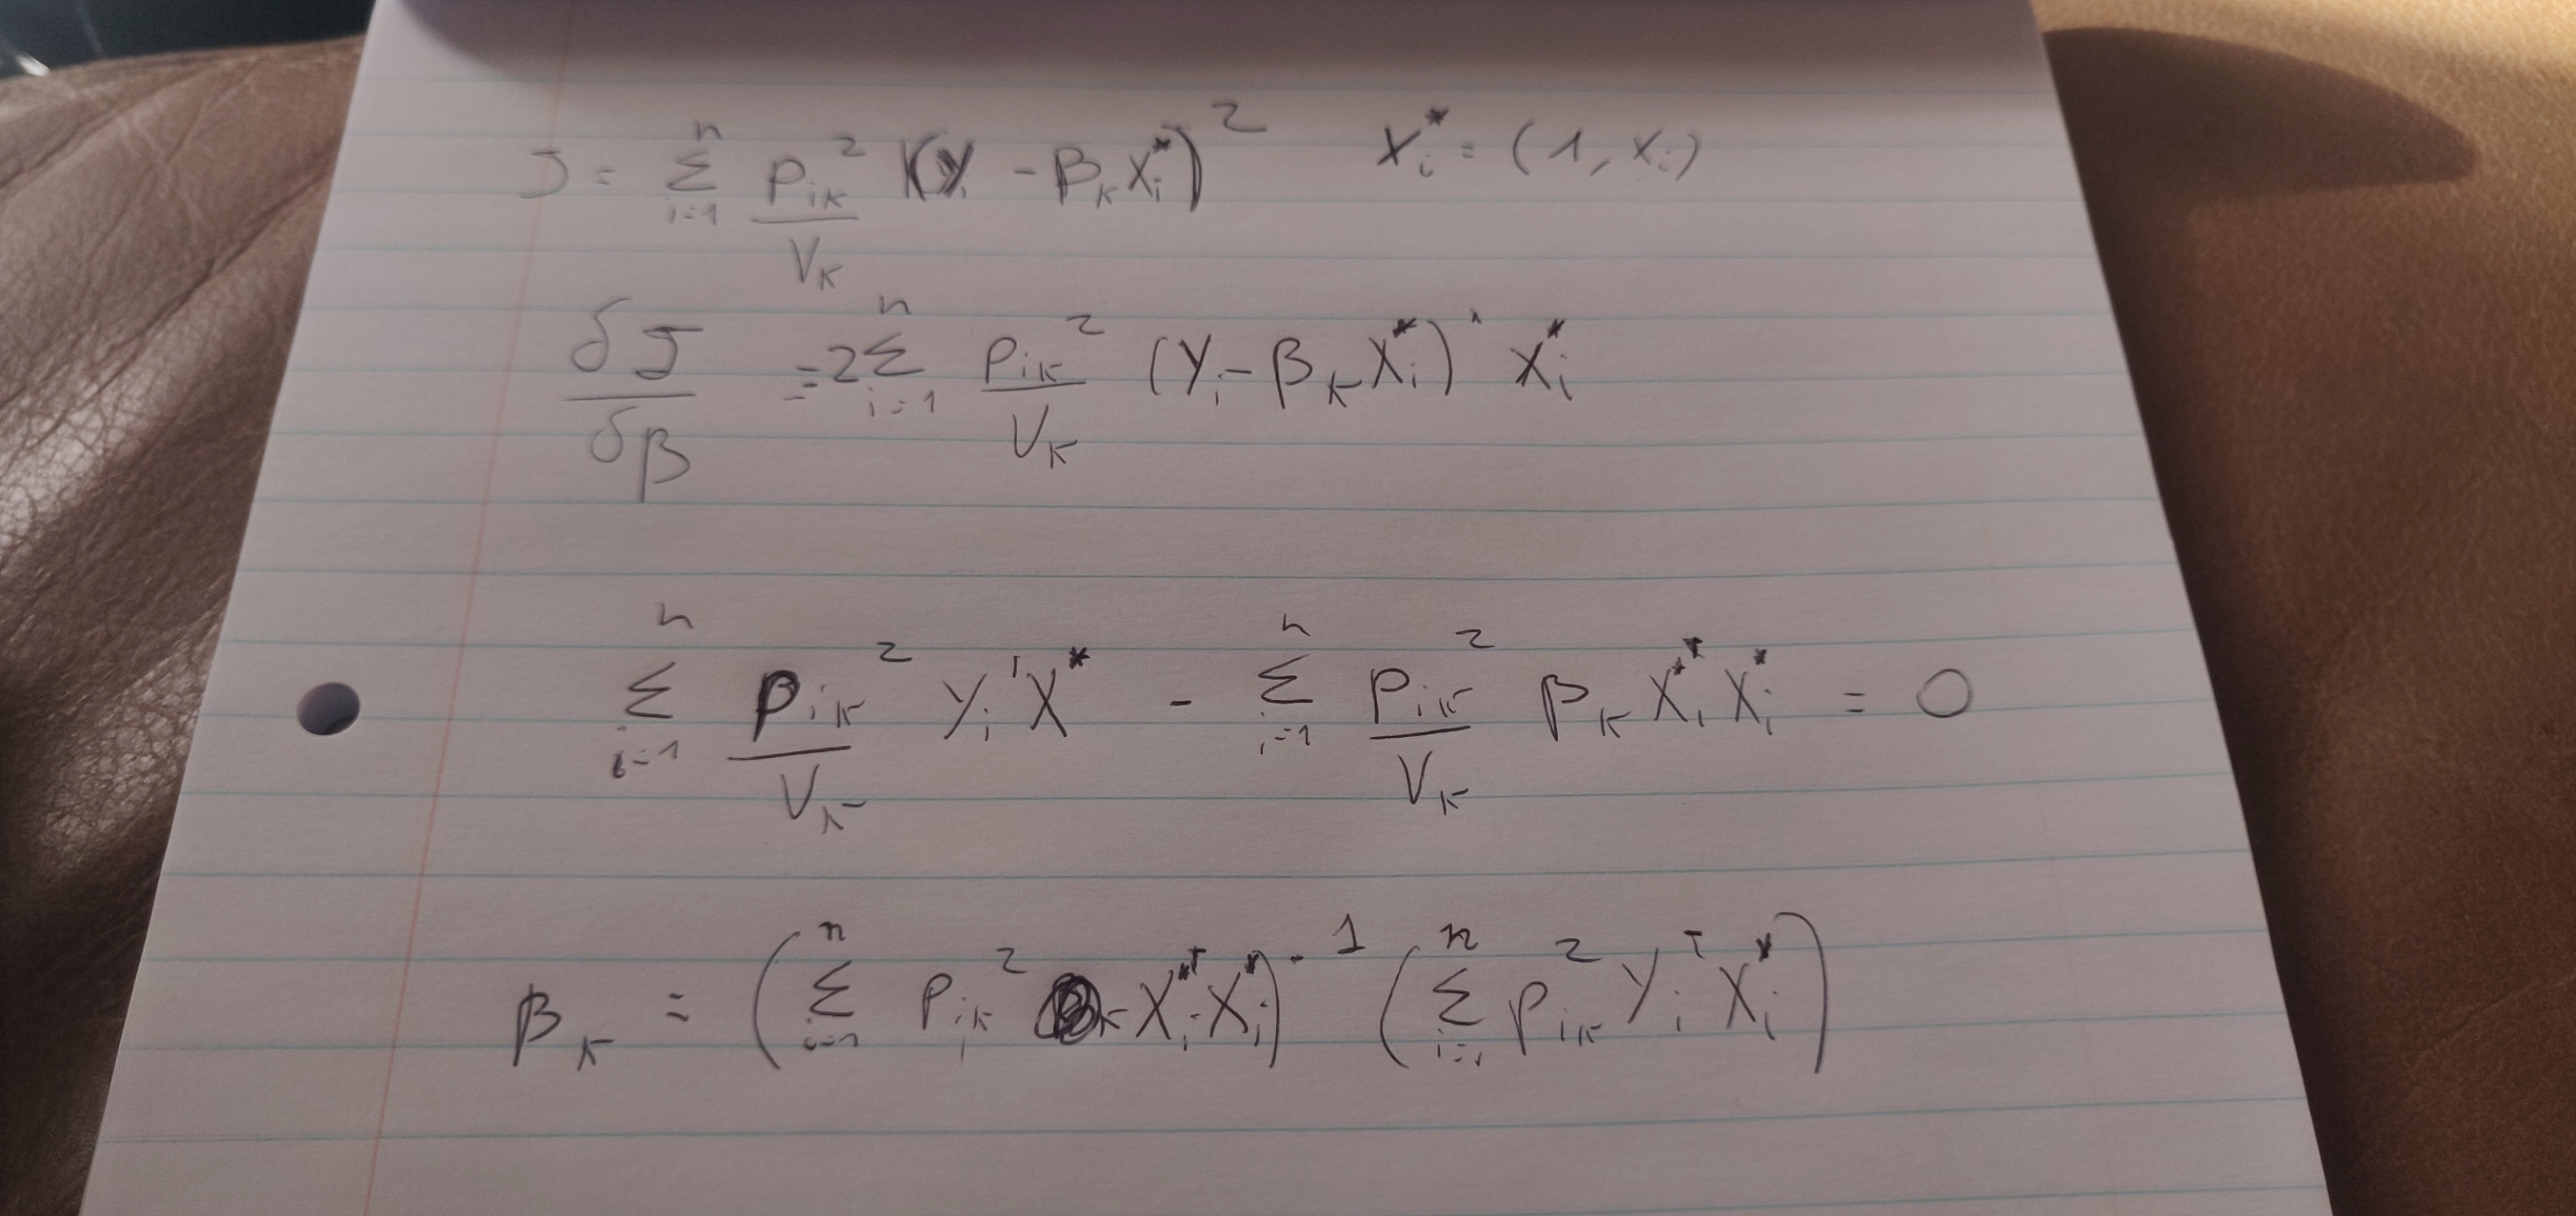 J = Σ_{i=1}^{n} P_{ik}^2 / V_k (y_i - β_k x_i^*)^2    x_i^* = (1, x_i)
δJ / δβ = 2 Σ_{i=1}^{n} P_{ik}^2 / V_k (y_i - β_k x_i^*)' x_i^*
Σ_{i=1}^{n} P_{ik}^2 / V_k y_i' x^* - Σ_{i=1}^{n} P_{ik}^2 / V_k β_k x_i^{*T} x_i^* = 0
β_k = (Σ_{i=1}^{n} P_{ik}^2 x_i^{*T} x_i^*)^{-1} (Σ_{i=1}^{n} P_{ik}^2 y_i^T x_i^*)